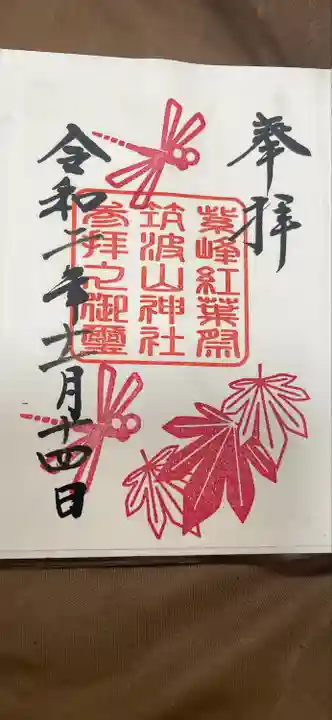 奉拝
紫峰紅葉祭
筑波山神社
参拝之御璽
令和二年十一月十四日